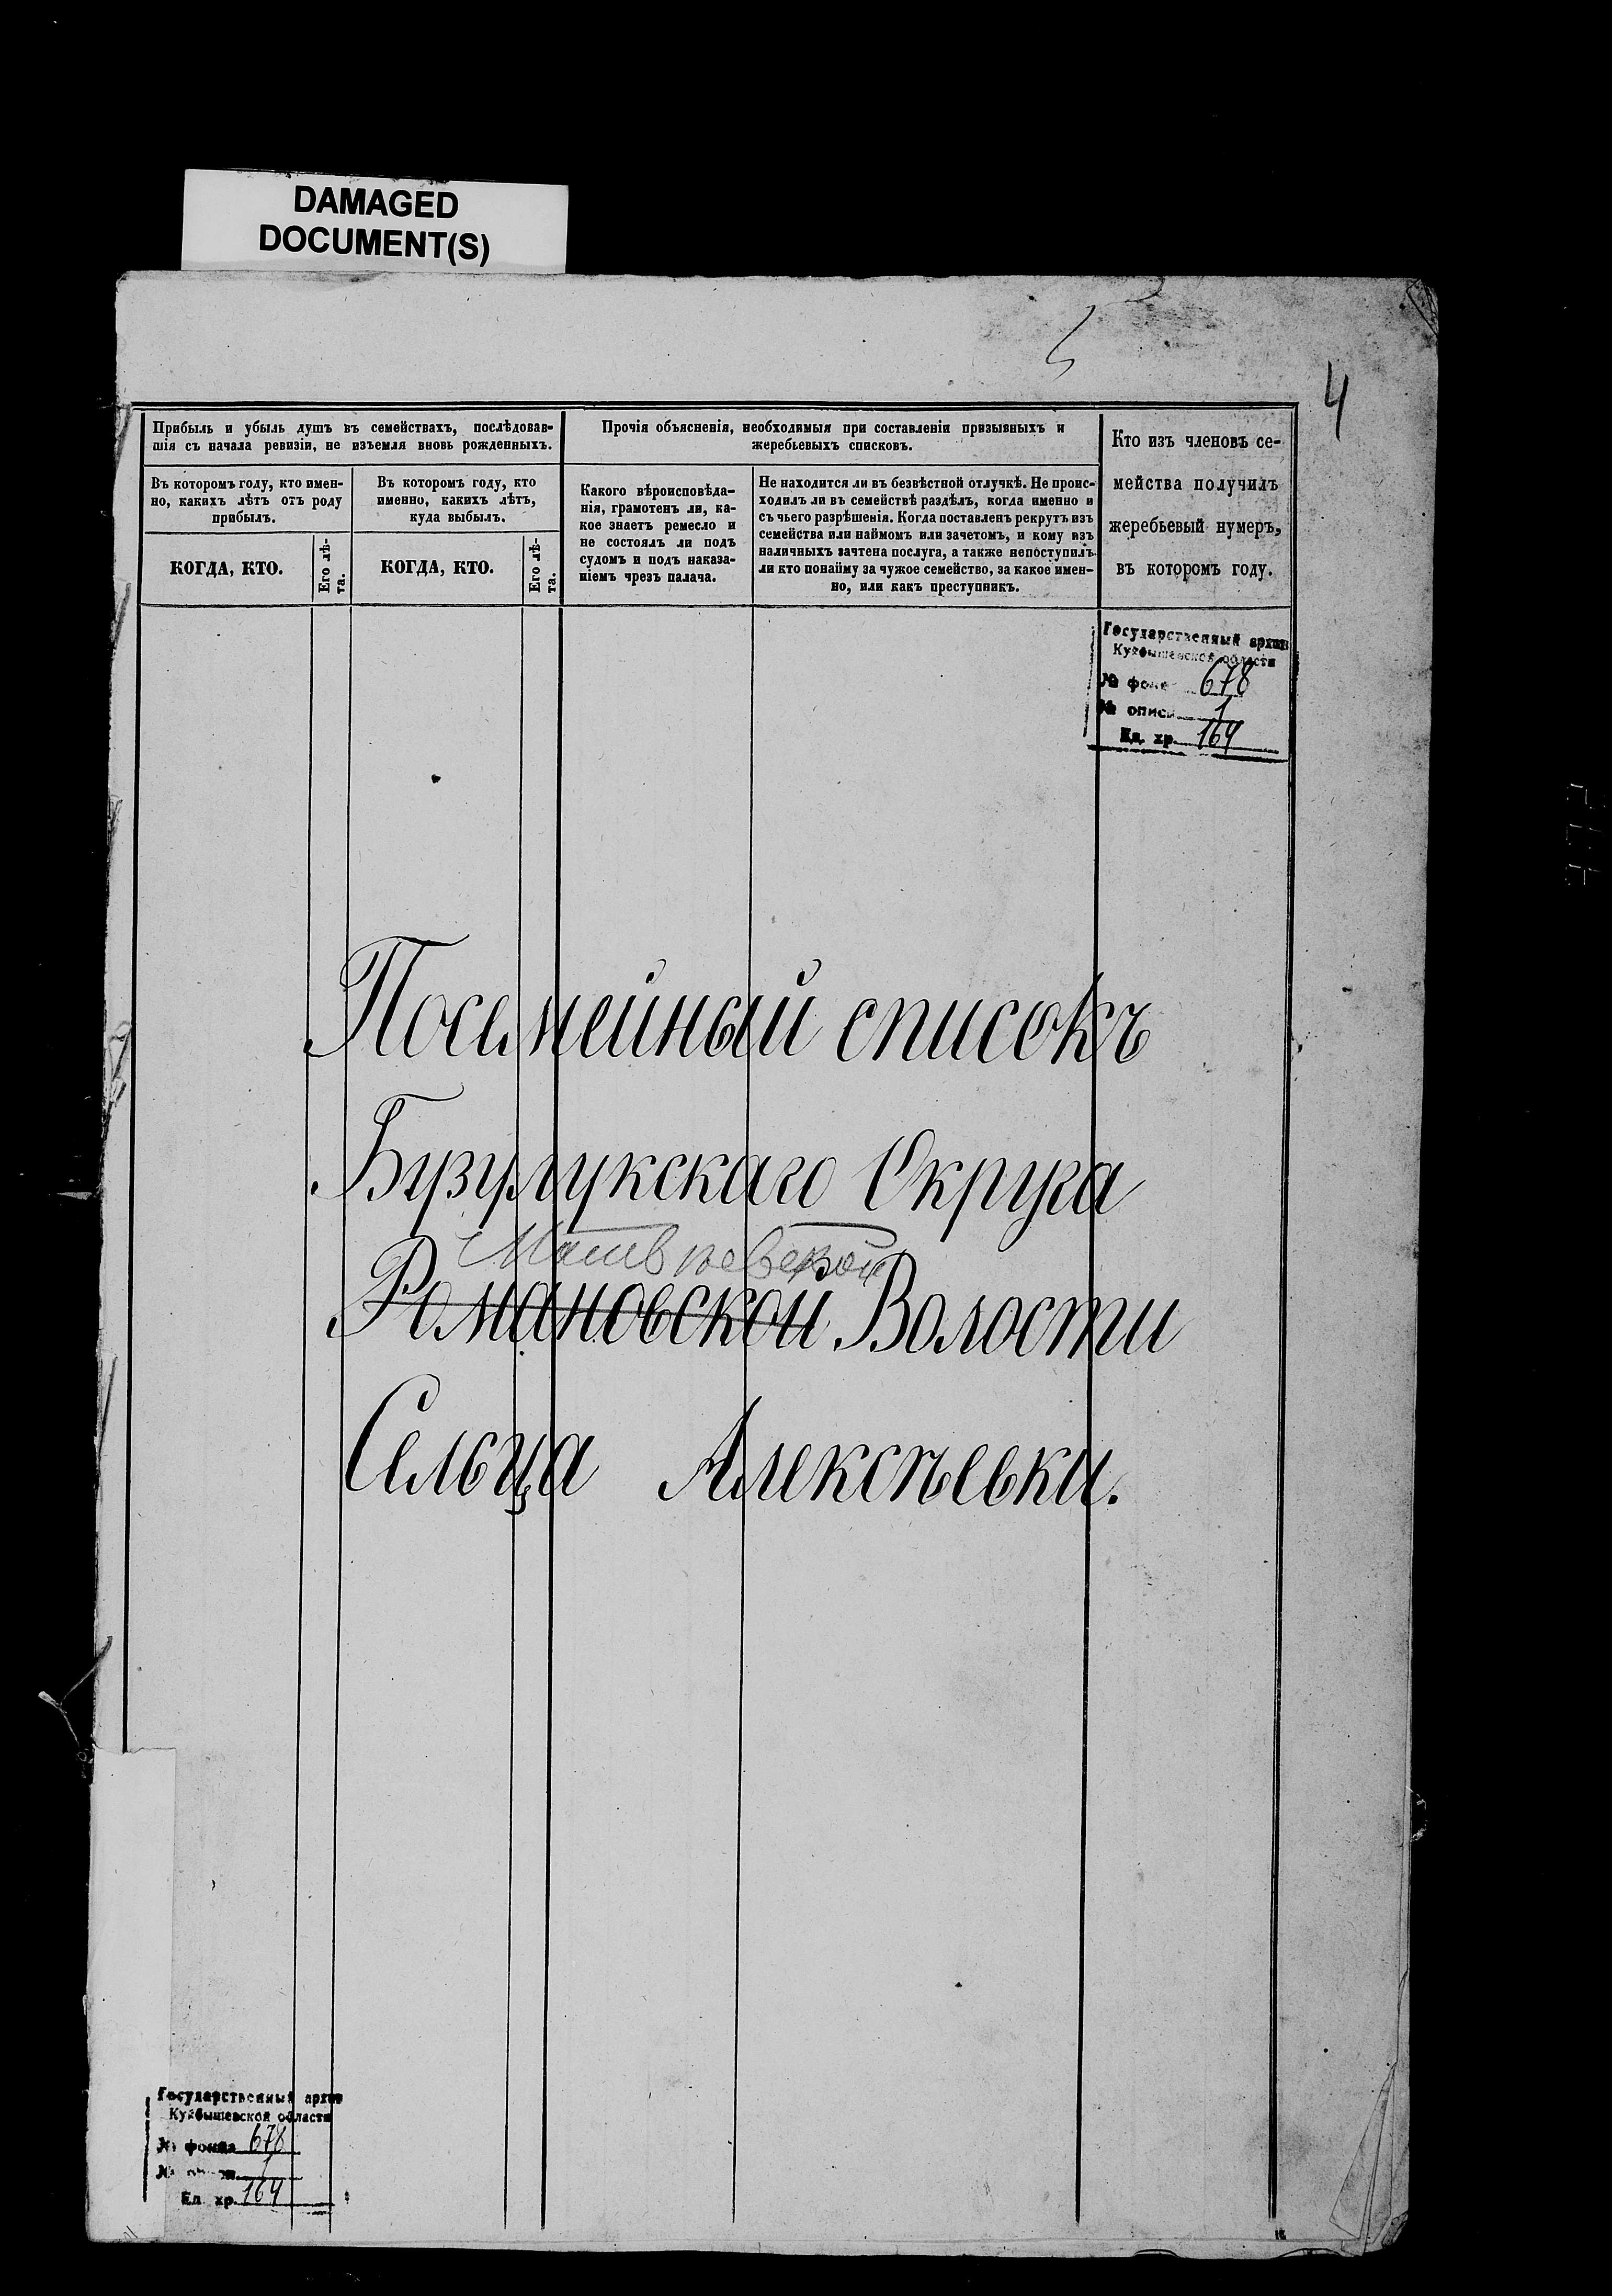 DAMAGED
DOCUMENT(S)
4
Прибыль и убыль душъ въ семействахъ, послѣдовав-
шія съ начала ревизіи, не изъемля вновь рожденныхъ.
Прочія объясненія, необходимыя при составленіи призывныхъ и
жеребьевыхъ списковъ.
Кто изъ членовъ се-
мейства получилъ
жеребьевый нумеръ,
въ которомъ году.
Въ которомъ году, кто имен-
но, какихъ лѣтъ отъ роду
прибылъ.
Въ которомъ году, кто
именно, какихъ лѣтъ,
куда выбылъ.
Какого вѣроисповѣда-
нія, грамотенъ ли, ка-
кое знаетъ ремесло и
не состоялъ ли подъ
судомъ и подъ наказа-
ніемъ чрезъ палача.
Не находится ли въ безвѣстной отлучкѣ. Не проис-
ходилъ ли въ семействѣ раздѣлъ, когда именно и
съ чьего разрѣшенія. Когда поставленъ рекрутъ изъ
семейства или наймомъ или зачетомъ, и кому изъ
наличныхъ зачтена послуга, а также непоступилъ-
ли кто понайму за чужое семейство, за какое имен-
но, или какъ преступникъ.
КОГДА, КТО.
Его лѣ-
та.
КОГДА, КТО.
Его лѣ-
та.
Государственный архив
Куйбышевской области
№ фонда 678
№ описи 1
Ед. хр. 164
Посемейный списокъ
Бузулукскаго Округа
Матвѣевской
Романовской Волости
Сельца Алексѣевки.
Государственный архив
Куйбышевской области
№ фонда 678
№ описи 1
Ед. хр. 164